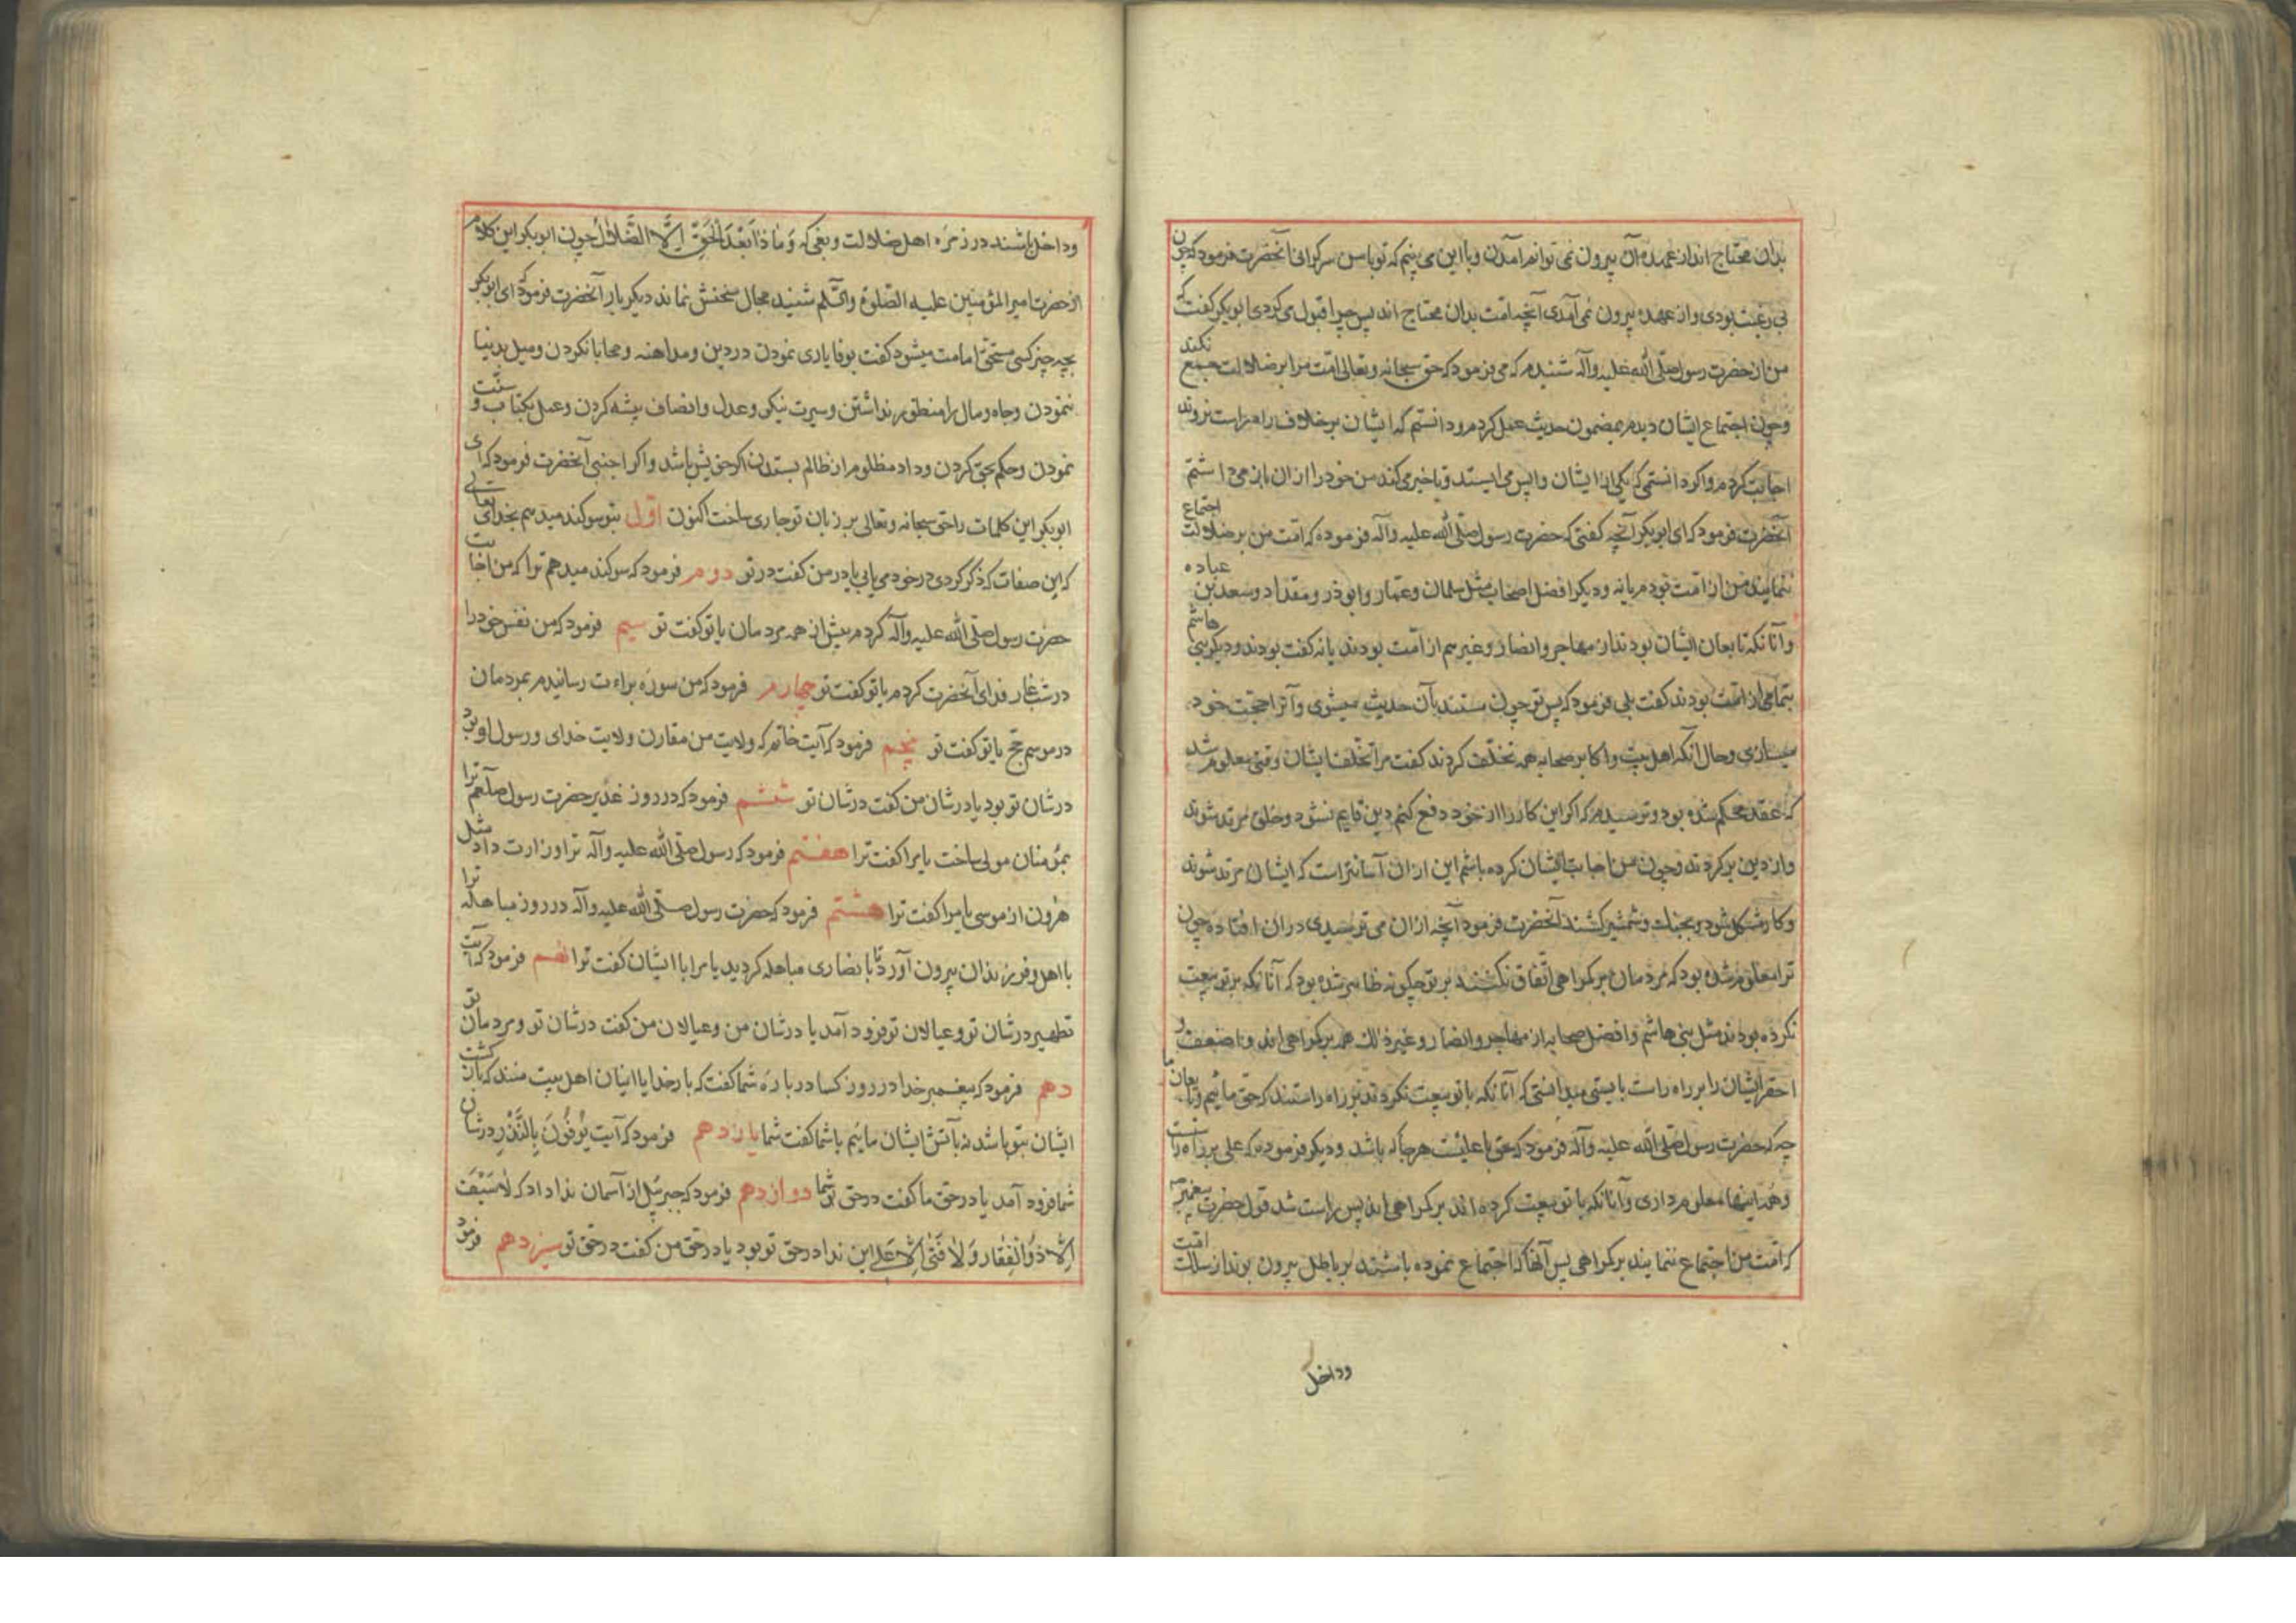 بدان محتاج اند از عهده آن بیرون نمی توانم آمدن و با این می بینم که تو با من سرکرانی آنحضرت فرمود که چون
بی رغبت بودی و از عهده بیرون نمی آمدی آنچه امت بدان محتاج اند پس چرا قبول می کردی ابوبکر کفت که
من از حضرت رسول صلّی الله علیه وآله شنیدم که می فرمود که حق سبحانه وتعالی امّت مرا بر ضلالت جمع نکند
وچون اجتماع ایشان دیدم بمضمون حدیث عمل کردم و دانستم که ایشان بر خلاف راه راست نروند
اجابت کردم و اکر دانستمی که یکی از ایشان واپس می ایستد و یا خیر می کند من خود را از ان باز می داشتم
آنحضرت فرمود که ای ابوبکر آنچه کفتی که حضرت رسول صلّی الله علیه وآله فرموده که امت من بر ضلالت اجتماع
ننمایند من از امت بودم یا نه ودیکر افضل اصحاب مثل سلمان وعمار وابوذر ومقداد وسعد بن عباده
وآنانکه تابعان ایشان بودند از مهاجر وانصار وغیرهم از امّت بودند یا نه کفت بودند ودیکر بنی هاشم
بتمامی از امّت بودند کفت بلی فرمود که پس تو چون مستند بآن حدیث میشوی وآنرا حجت خود
میسازی وحال آنکه اهل بیت واکابر صحابه همه تخلّف کردند کفت مرا تخلّف ایشان وقتی معلوم شد
که عقد محکم شده بود وترسیدم که اکر این کار را از خود دفع کنم دین قایم نشود وخلق مرتد شوند
واز دین برکردند وچون من اجابت ایشان کرده باشم این از ان آسانتر است که ایشان مرتد شوند
وکار مشکل شود وبجنك وشمشیر کشند آنحضرت فرمود آنچه از ان می ترسیدی در ان افتاده چون
ترا معلوم شده بود که مردمان بر کمراهی اتّفاق نکنند بر تو چکونه ظاهر شده بود که آنانکه بر تو بیعت
نکرده بودند مثل بنی هاشم وافضل صحابه از مهاجر وانصار وغیر ذلك همه بر کمراهی اند ونا ضعف و
احقر ایشان را بر راه راست بایستی میدانستی که آنانکه با تو بیعت نکردند بر راه راستند که حق مائیم وتابعان ما
چه که حضرت رسول صلّی الله علیه وآله فرمود که حق با علیست هر جا که باشد ودیکر فرموده که علی بر راه راست
وهمه اینها معلوم داری وآنانکه با تو بیعت کرده اند بر کمراهی اند پس راست شد قول حضرت پیغمبر
که امّت من اجتماع ننمایند بر کمراهی پس آنها که اجتماع نموده باشند بر باطل بیرون بوند از سالت امّت
وداخل
وداخل باشند در زمره اهل ضلالت وبغی که وَمَا ذَا بَعْدَ الْحَقِّ اِلَّا الضَّلَالُ چون ابوبکر این کلام
از حضرت امیر المؤمنین علیه الصّلوة والسّلم شنید مجال سخنش نماند دیکر بار آنحضرت فرمود که ای ابوبکر
بچه چیز کسی مستحق امامت میشود کفت بوفا یاری نمودن در دین ومداهنه ومحابا نکردن ومیل بدینا
ننمودن وجاه ومال را منظور نداشتن وسیرت نیکی وعدل وانصاف پیشه کردن وعمل بکتاب وسنّت
نمودن وحکم بحق کردن وداد مظلوم از ظالم بستدن اکر خویش باشد واکر اجنبی آنحضرت فرمود که ای
ابوبکر این کلمات را حق سبحانه وتعالی بر زبان تو جاری ساخت اکنون اوّل بتو سوکند میدهم بخدای تعالی
که این صفات که ذکر کردی در خود می یابی یا در من کفت در تو دوم فرمود که سوکند میدهم ترا که من اجابت
حضرت رسول صلّی الله علیه وآله کردم پیش از همه مردمان یا تو کفت تو سیم فرمود که من نفس خود را
در شب غار فدای آنحضرت کردم یا تو کفت تو چهارم فرمود که من سوره براءت رسانیدم بمردمان
در موسم حجّ یا تو کفت تو پنجم فرمود که آیت خاتم که ولایت من مقارن ولایت خدای ورسول او بود
در شان تو بود یا در شان من کفت در شان تو ششم فرمود که در روز غدیر حضرت رسول صلعم ترا
بمؤمنان مولی ساخت یا مرا کفت ترا هفتم فرمود که رسول صلّی الله علیه وآله ترا وزارت داد مثل
هرون از موسی یا مرا کفت ترا هشتم فرمود که حضرت رسول صلّی الله علیه وآله در روز مباهله ترا
با اهل وفرزندان بیرون آورد تا با نصاری مباهله کردید یا مرا با ایشان کفت ترا نهم فرمود که آیت
تطهیر در شان تو وعیالان تو فرود آمد یا در شان من وعیالان من کفت در شان تو ومردمان تو
دهم فرمود که پیغمبر خدا در روز کسا در باره شما کفت که بار خدایا اینان اهل بیت منند که بازکشت
ایشان بتو باشد نه بآتش ایشان مائیم یا شما کفت شما یازدهم فرمود که آیت یُوفُونَ بِالنَّذْرِ در شان
شما فرود آمد یا در حق ما کفت در حق شما دوازدهم فرمود که جبرئیل از آسمان ندا داد که لَا سَیْفَ
اِلَّا ذُو الْفِقَار وَلَا فَتٰی اِلَّا عَلِی این ندا در حق تو بود یا در حق من کفت در حق تو سیزدهم فرمود